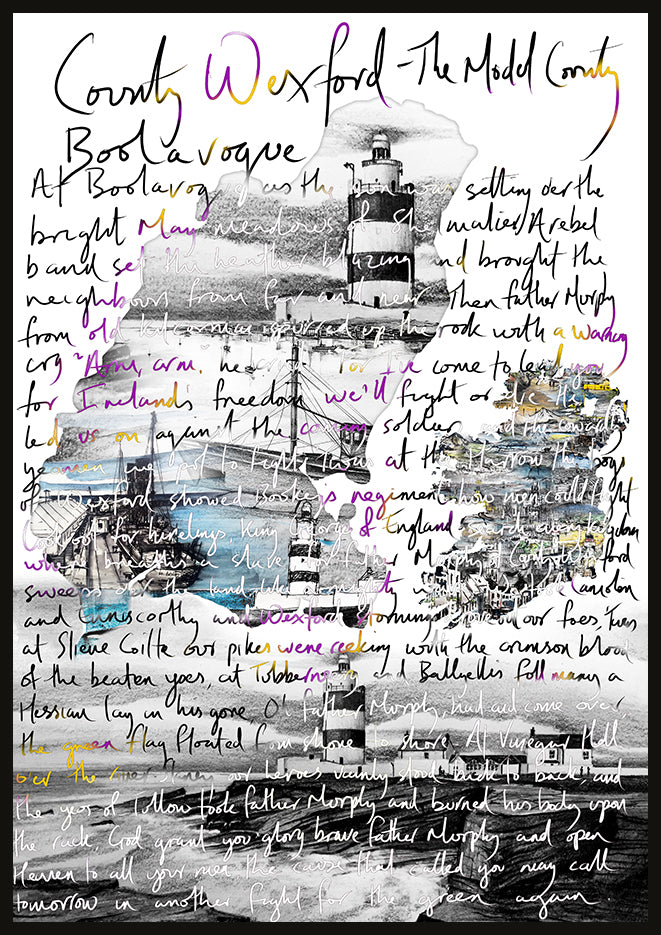 County Wexford - The Model County
Boolavogue
At Boolavogue as the sun was setting oer the
bright May meadows of Shelmalier A rebel
band set the heather blazing and brought the
neighbours from far and near Then father Murphy
from old Kilcormac spurred up the rock with a warning
cry "Arm, arm, he cried For I've come to lead you
for Ireland's freedom we'll fight or die He
led us on against the coming soldier and the cowardly
yeomen we put to flight Twas at the Harrow the boys
of Wexford showed Bookey's regiment how men could fight
Lookout for hirelings, King George of England search every kingdom
where breathes a slave for father Murphy of County Wexford
sweeps oer the land like a mighty Camolin
and Enniscorthy and Wexford storming drove our foes, Twas
at Slieve Coilte our pikes were reeking with the crimson blood
of the beaten yoes, at Tubberneering and Ballyellis full many a
Hessian lay in his gore O! father Murphy, had aid come over
the green flag floated from shore to shore At Vinegar Hill
o'er the our heroes vainly stood back to back, and
the yeos of Tullow took father Murphy and burned his body upon
the rack, God grant you glory brave father Murphy and open
Heaven to all your men the cause that called you may call
tomorrow in another fight for the green again.